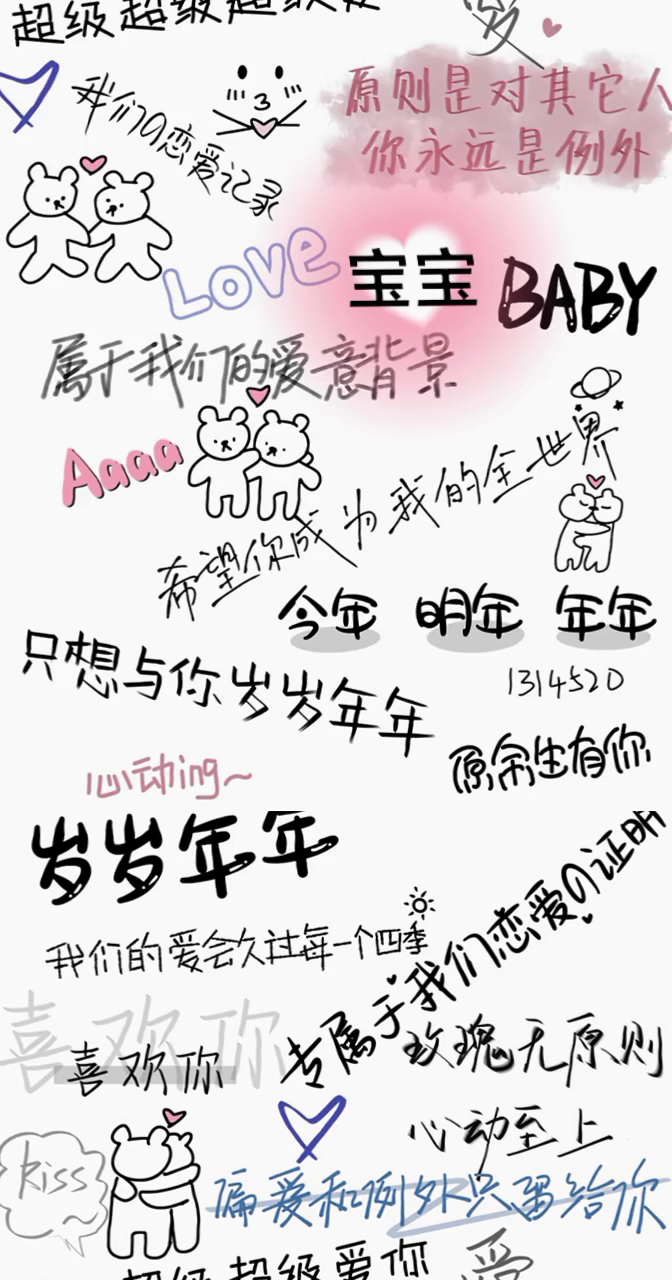 超级超级超级爱
爱
我们の恋爱记录
原则是对其它人
你永远是例外
Love
宝宝
BABY
属于我们的爱意背景
Aaaa
希望你成为我的全世界
今年 明年 年年
只想与你岁岁年年
1314520
心动ing~
原余生有你
岁岁年年
专属于我们恋爱の证明
我们的爱会久过每一个四季
喜欢你
喜欢你
玫瑰无原则
心动至上
kiss
偏爱和例外只留给你
超级超级爱你
爱